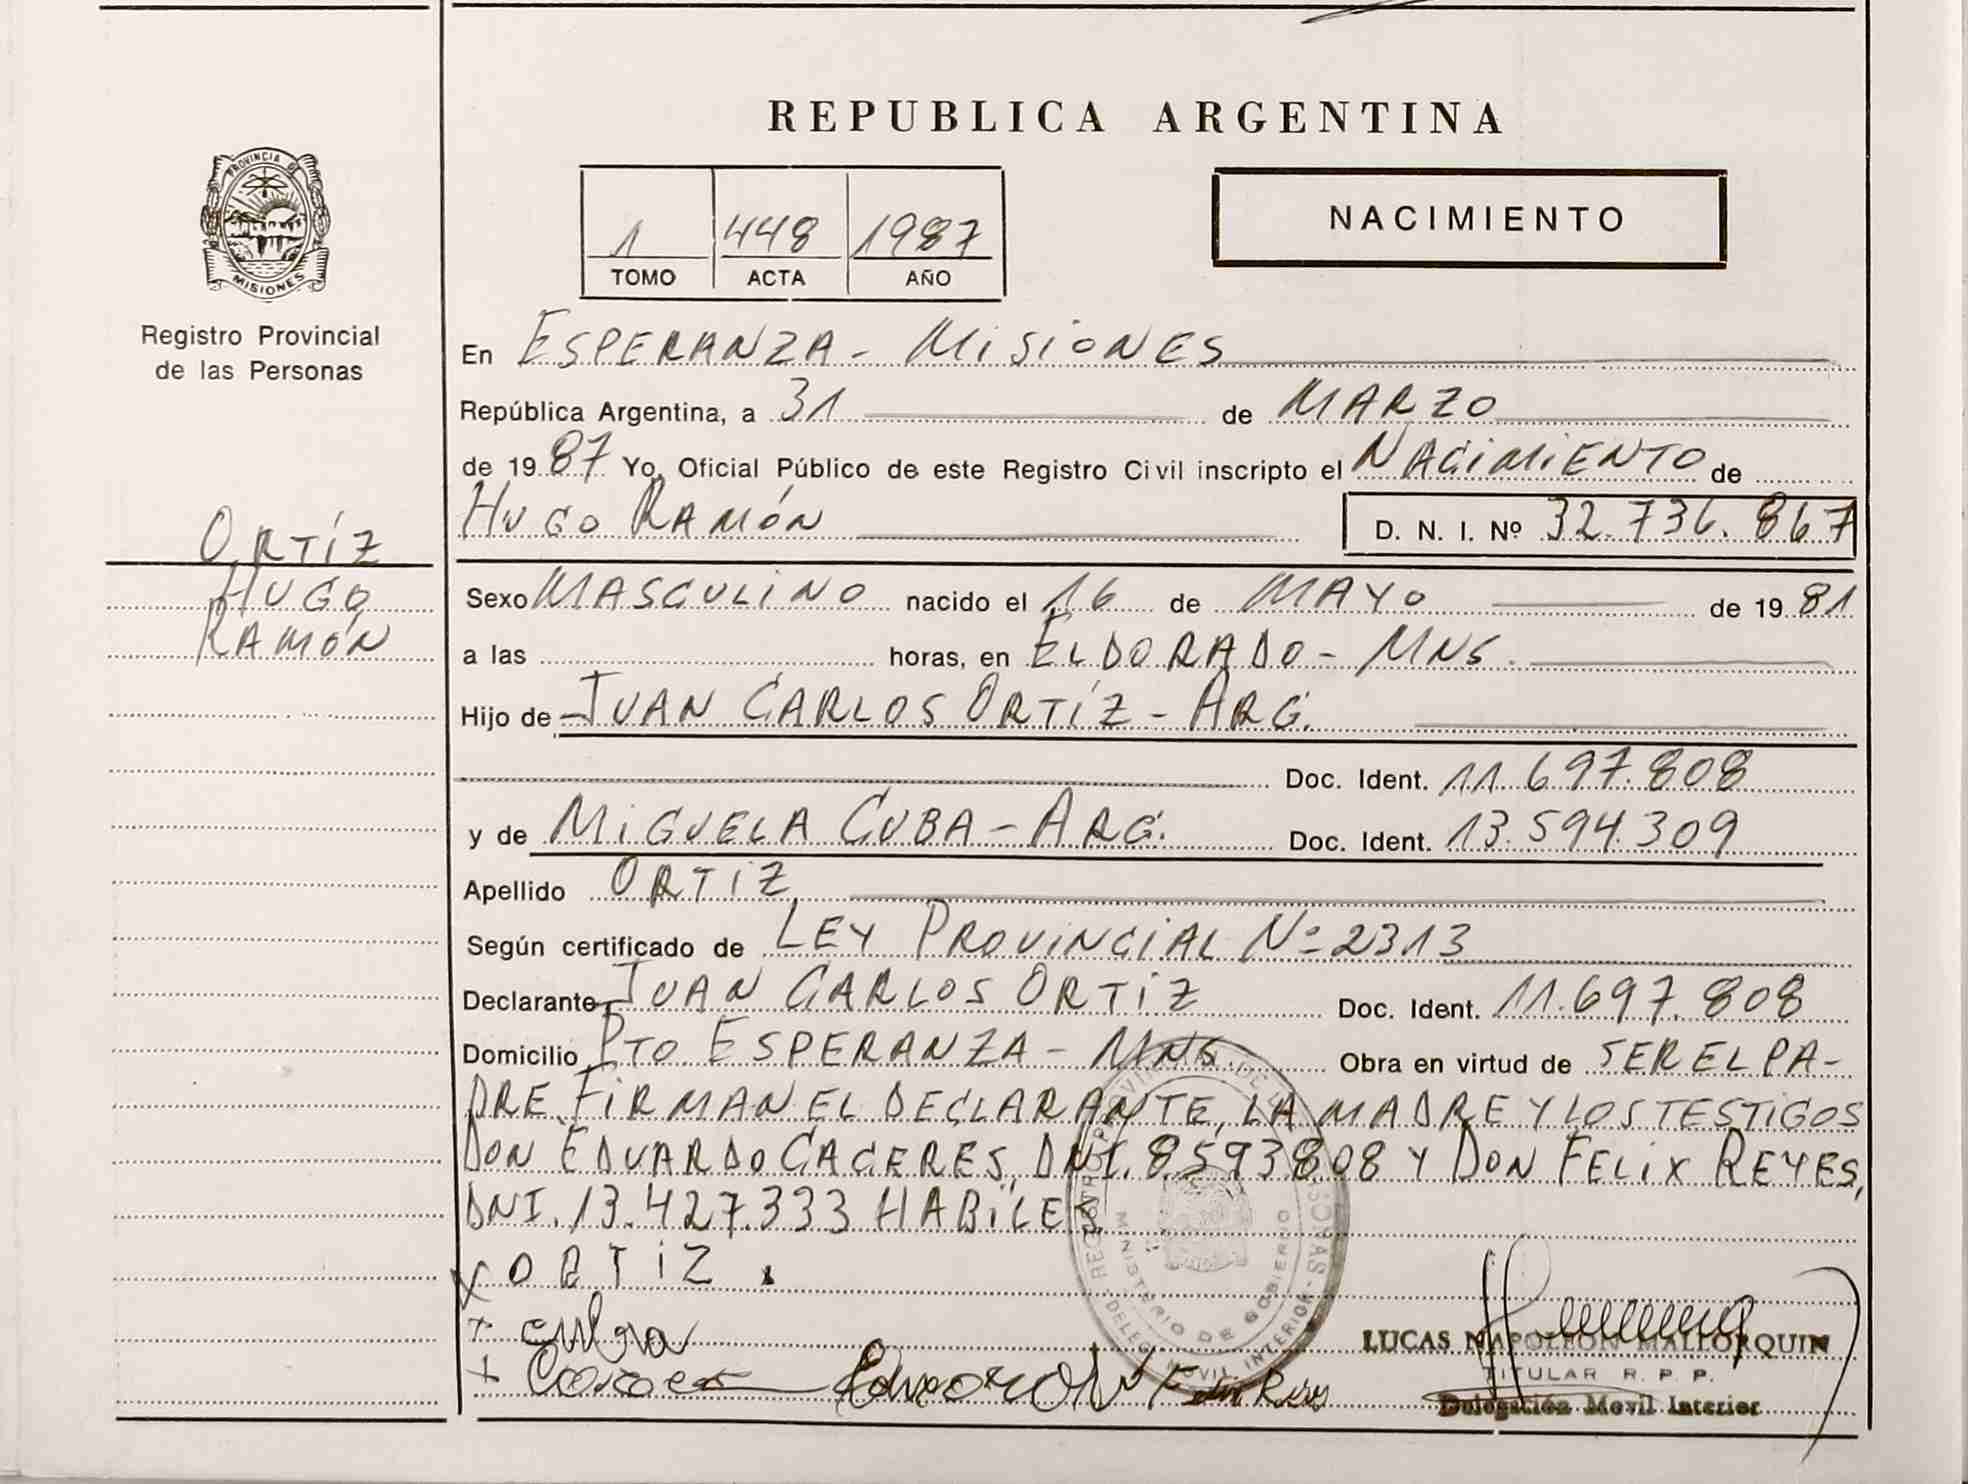 REPUBLICA ARGENTINA
PROVINCIA DE
MISIONES
Registro Provincial
de las Personas
1 448 1987
TOMO ACTA AÑO
NACIMIENTO
En ESPERANZA - MISIONES
República Argentina, a 31 de MARZO
de 1987 Yo, Oficial Público de este Registro Civil inscripto el NACIMIENTO de
HUGO RAMÓN D. N. I. Nº 32.736.867
ORTÍZ
HUGO
RAMÓN
Sexo MASCULINO nacido el 16 de MAYO de 1981
a las horas, en ELDORADO - MNS.
Hijo de JUAN CARLOS ORTÍZ - ARG.
Doc. Ident. 11.697.808
y de MIGUELA CUBA - ARG. Doc. Ident. 13.594.309
Apellido ORTIZ
Según certificado de LEY PROVINCIAL Nº 2313
Declarante JUAN CARLOS ORTIZ Doc. Ident. 11.697.808
Domicilio PTO ESPERANZA - MNS. Obra en virtud de SER EL PA-
DRE. FIRMAN EL DECLARANTE, LA MADRE Y LOS TESTIGOS
DON EDUARDO CACERES, DNI. 8.593.808 Y DON FELIX REYES,
DNI. 13.427.333 HABILES
X ORTIZ.
MINISTERIO DE GOBIERNO
DELEG. MOVIL INTERIOR
LUCAS NAPOLEON MALLORQUIN
TITULAR R. P. P.
Delegación Movil Interior